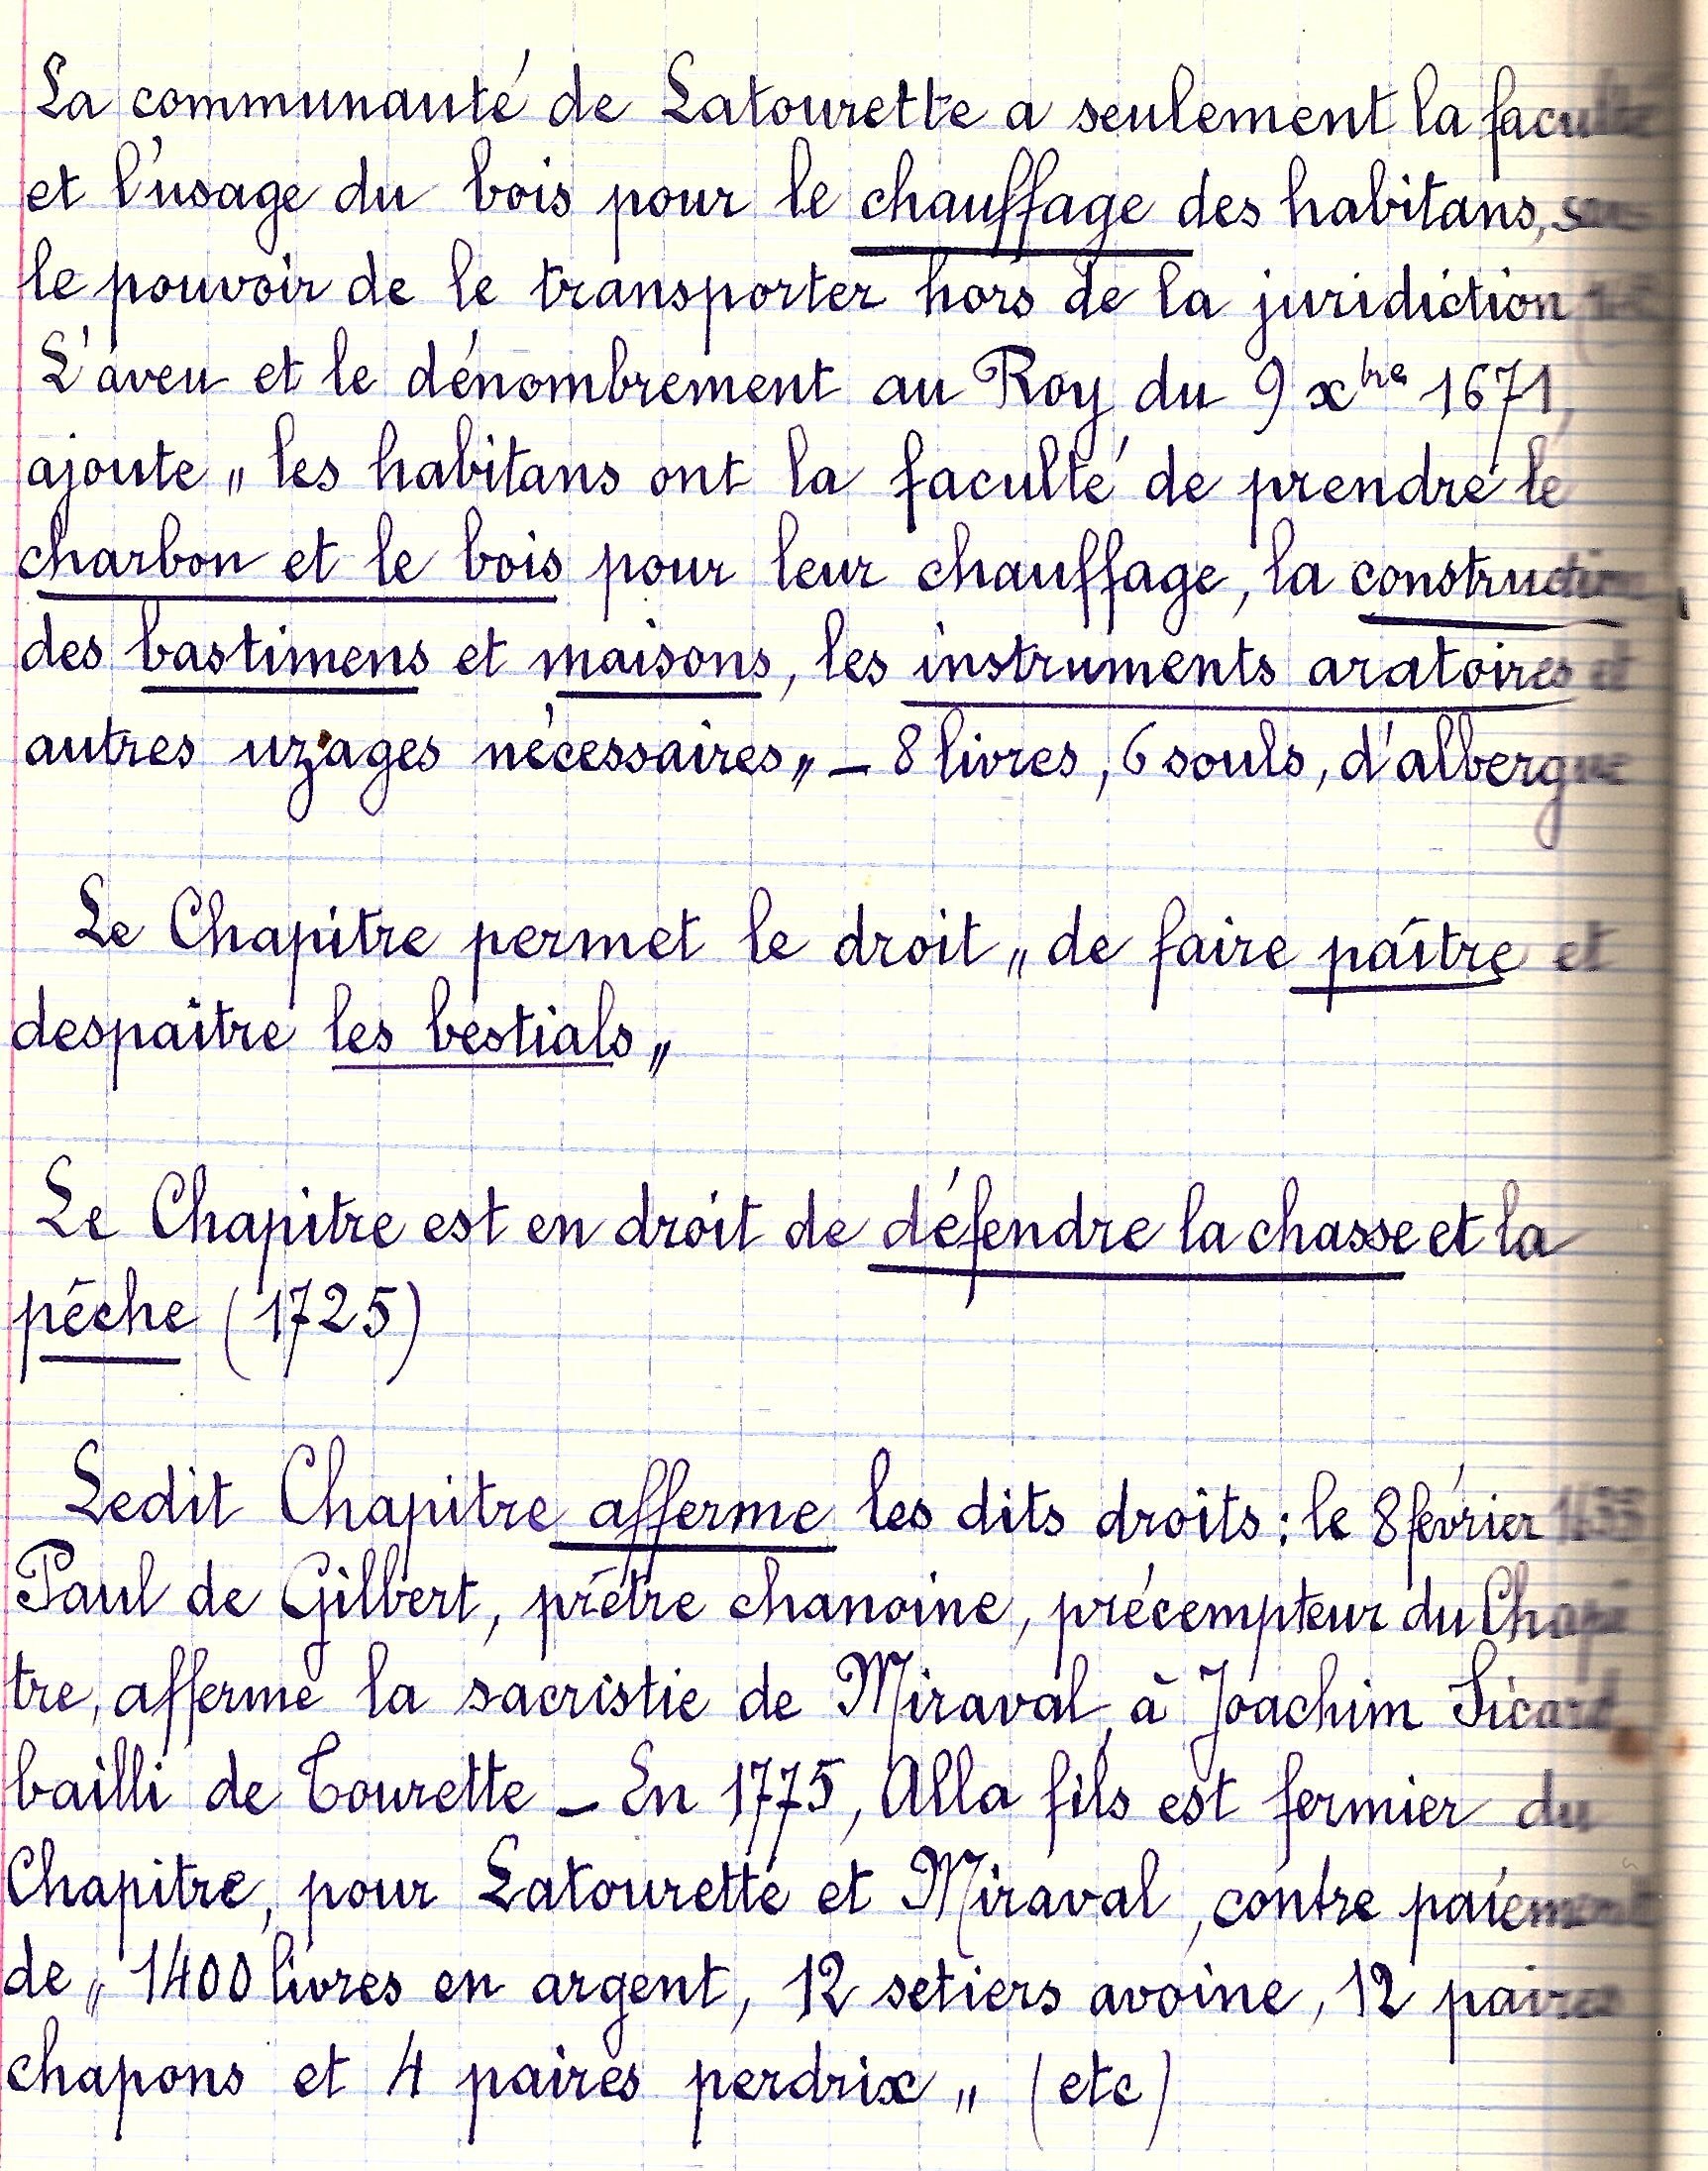 La communauté de Latourette a seulement la faculté
et l'usage du bois pour le chauffage des habitans, sans
le pouvoir de le transporter hors de la juridiction
L'aveu et le dénombrement au Roy du 9 xbre 1671,
ajoute „ les habitans ont la faculté de prendre le
charbon et le bois pour leur chauffage, la construction
des bastimens et maisons, les instruments aratoires et
autres uzages nécessaires „ _ 8 livres, 6 souls, d'albergue
Le Chapitre permet le droit „ de faire paître et
despaitre les bestials „
Le Chapitre est en droit de défendre la chasse et la
pêche (1725)
Ledit Chapitre afferme les dits droits : le 8 février
Paul de Gilbert, prêtre chanoine, précempteur du Chapi
tre, afferme la sacristie de Miraval, à Joachim Sicard
bailli de Tourette _ En 1775, Alla fils est fermier du
Chapitre, pour Latourette et Miraval, contre paiement
de „ 1400 livres en argent, 12 setiers avoine, 12 paires
chapons et 4 paires perdrix „ (etc)